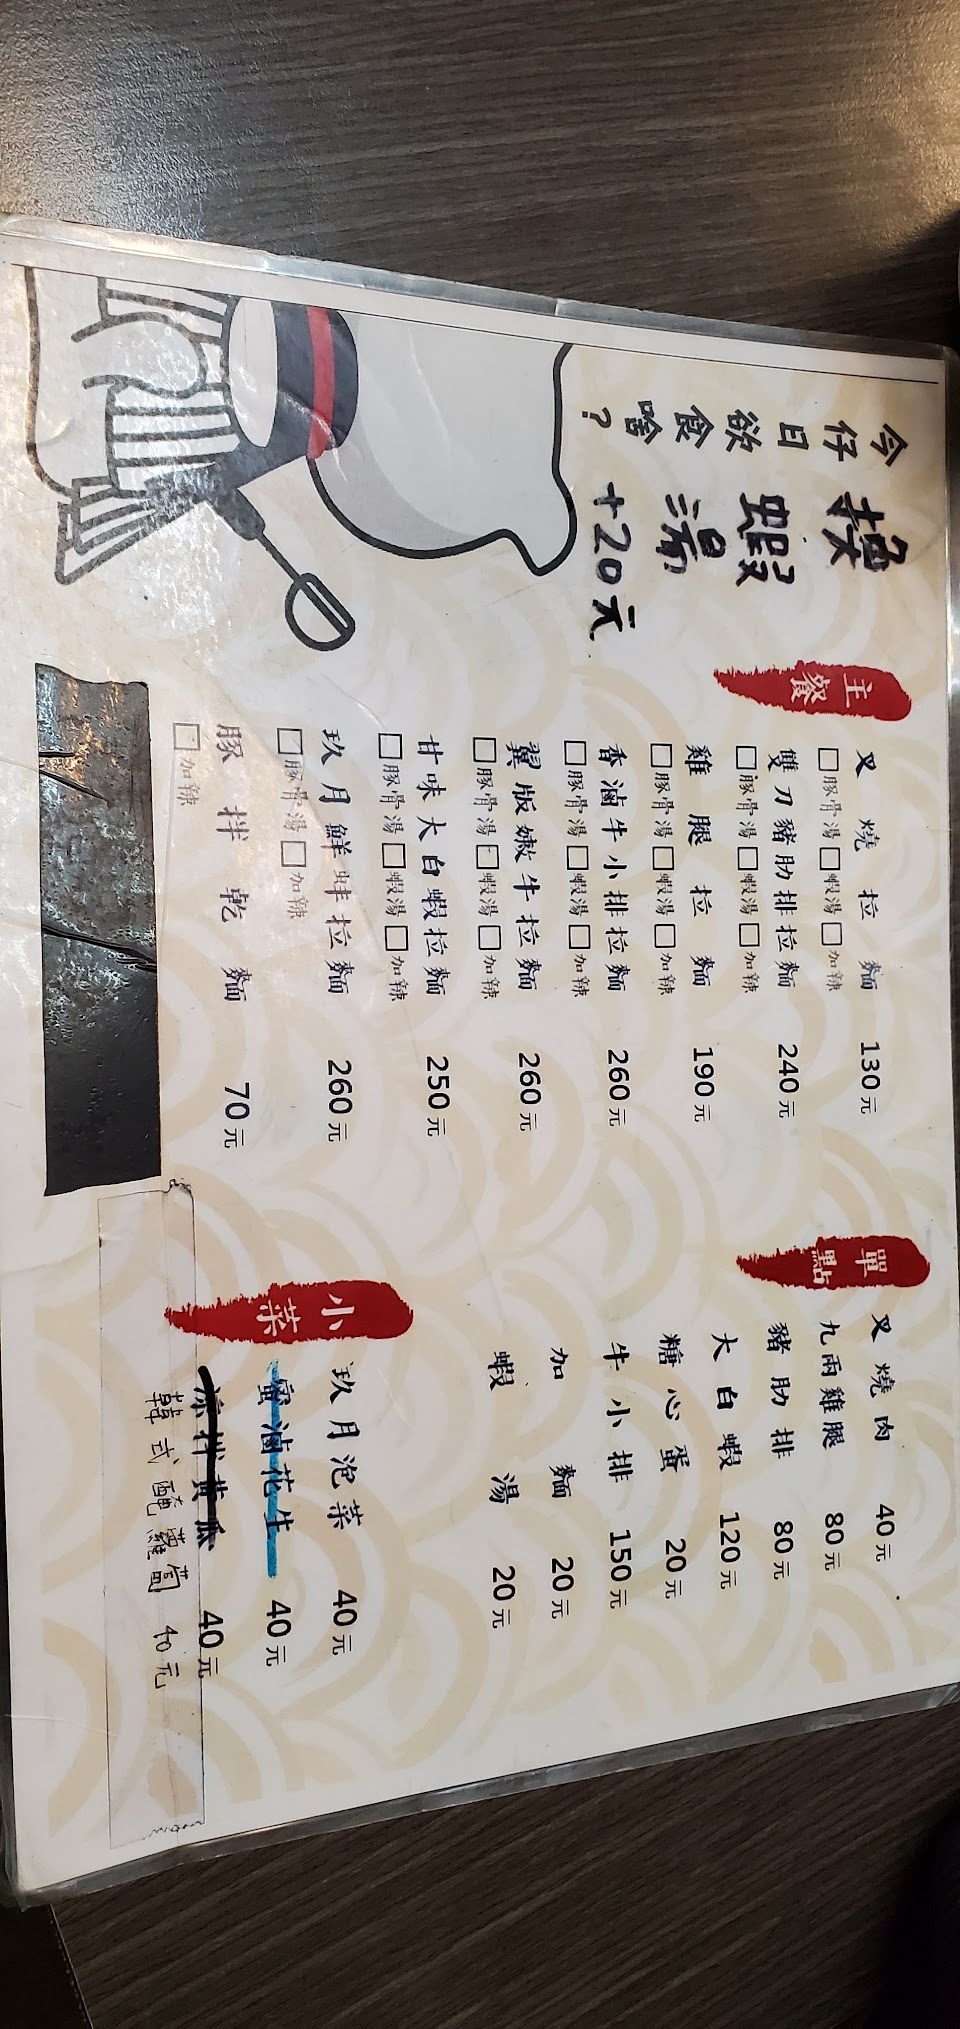 今仔日欲食啥?
換蝦湯
+20元
主餐
叉燒拉麵 130元
□豚骨湯 □蝦湯 □加辣
雙刀豬肋排拉麵 240元
□豚骨湯 □蝦湯 □加辣
雞腿拉麵 190元
□豚骨湯 □蝦湯 □加辣
香滷牛小排拉麵 260元
□豚骨湯 □蝦湯 □加辣
翼版嫩牛拉麵 260元
□豚骨湯 □蝦湯 □加辣
甘味大白蝦拉麵 250元
□豚骨湯 □蝦湯 □加辣
玖月鮮蚌拉麵 260元
□豚骨湯 □加辣
豚拌乾麵 70元
□加辣
單點
叉燒肉 40元
九兩雞腿 80元
豬肋排 80元
大白蝦 120元
糖心蛋 20元
牛小排 150元
加麵 20元
蝦湯 20元
小菜
玖月泡菜 40元
蜜滷花生 40元
涼拌黃瓜 40元
韓式醃蘿蔔 40元